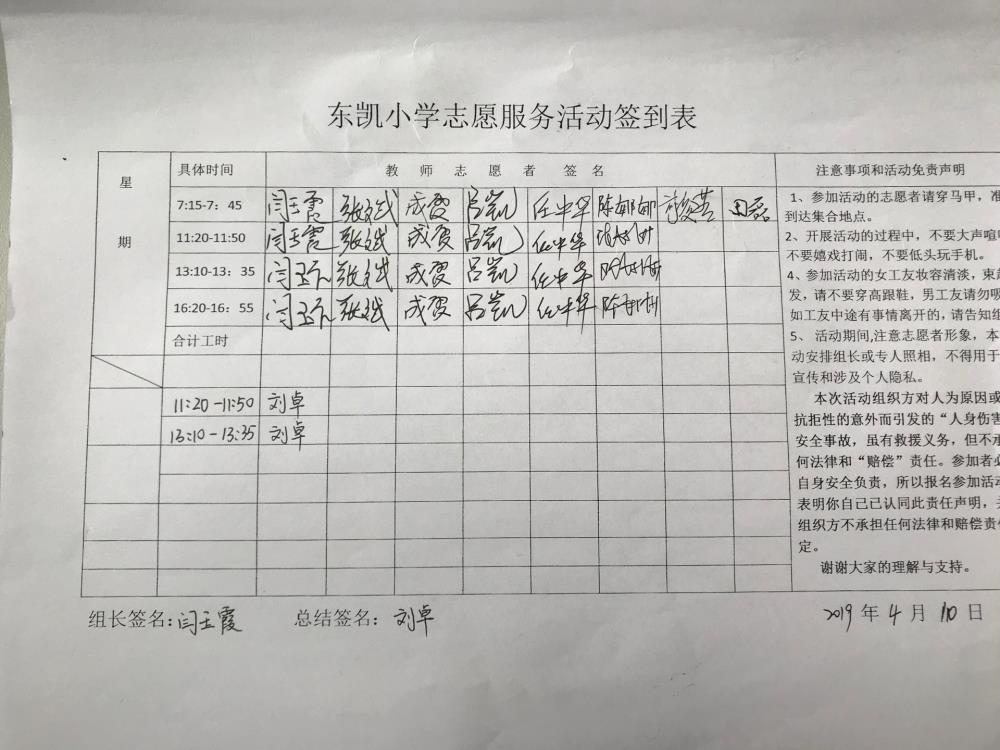 东凯小学志愿服务活动签到表
星期 具体时间 教师志愿者签名 注意事项和活动免责声明
7:15-7:45 闫玉霞 张斌 成霞 吕凯 任中华 陈 田磊
11:20-11:50 闫玉霞 张斌 成霞 吕凯 任中华
13:10-13:35 闫玉 张斌 成霞 吕凯 任中华
16:20-16:55 闫玉 张斌 成霞 吕凯 任中华 陈
合计工时
11:20-11:50 刘卓
13:10-13:35 刘卓
1、参加活动的志愿者请穿马甲,准
到达集合地点。
2、开展活动的过程中,不要大声喧
不要嬉戏打闹,不要低头玩手机。
4、参加活动的女工友妆容清淡,束
发,请不要穿高跟鞋,男工友请勿吸
如工友中途有事情离开的,请告知组
5、 活动期间,注意志愿者形象,本
动安排组长或专人照相,不得用于
宣传和涉及个人隐私。
本次活动组织方对人为原因或
抗拒性的意外而引发的“人身伤害
安全事故,虽有救援义务,但不承
何法律和“赔偿”责任。参加者必
自身安全负责,所以报名参加活动
表明你自己已认同此责任声明,
组织方不承担任何法律和赔偿责任
定。
谢谢大家的理解与支持。
组长签名:闫玉霞 总结签名:刘卓 2019年4月10日